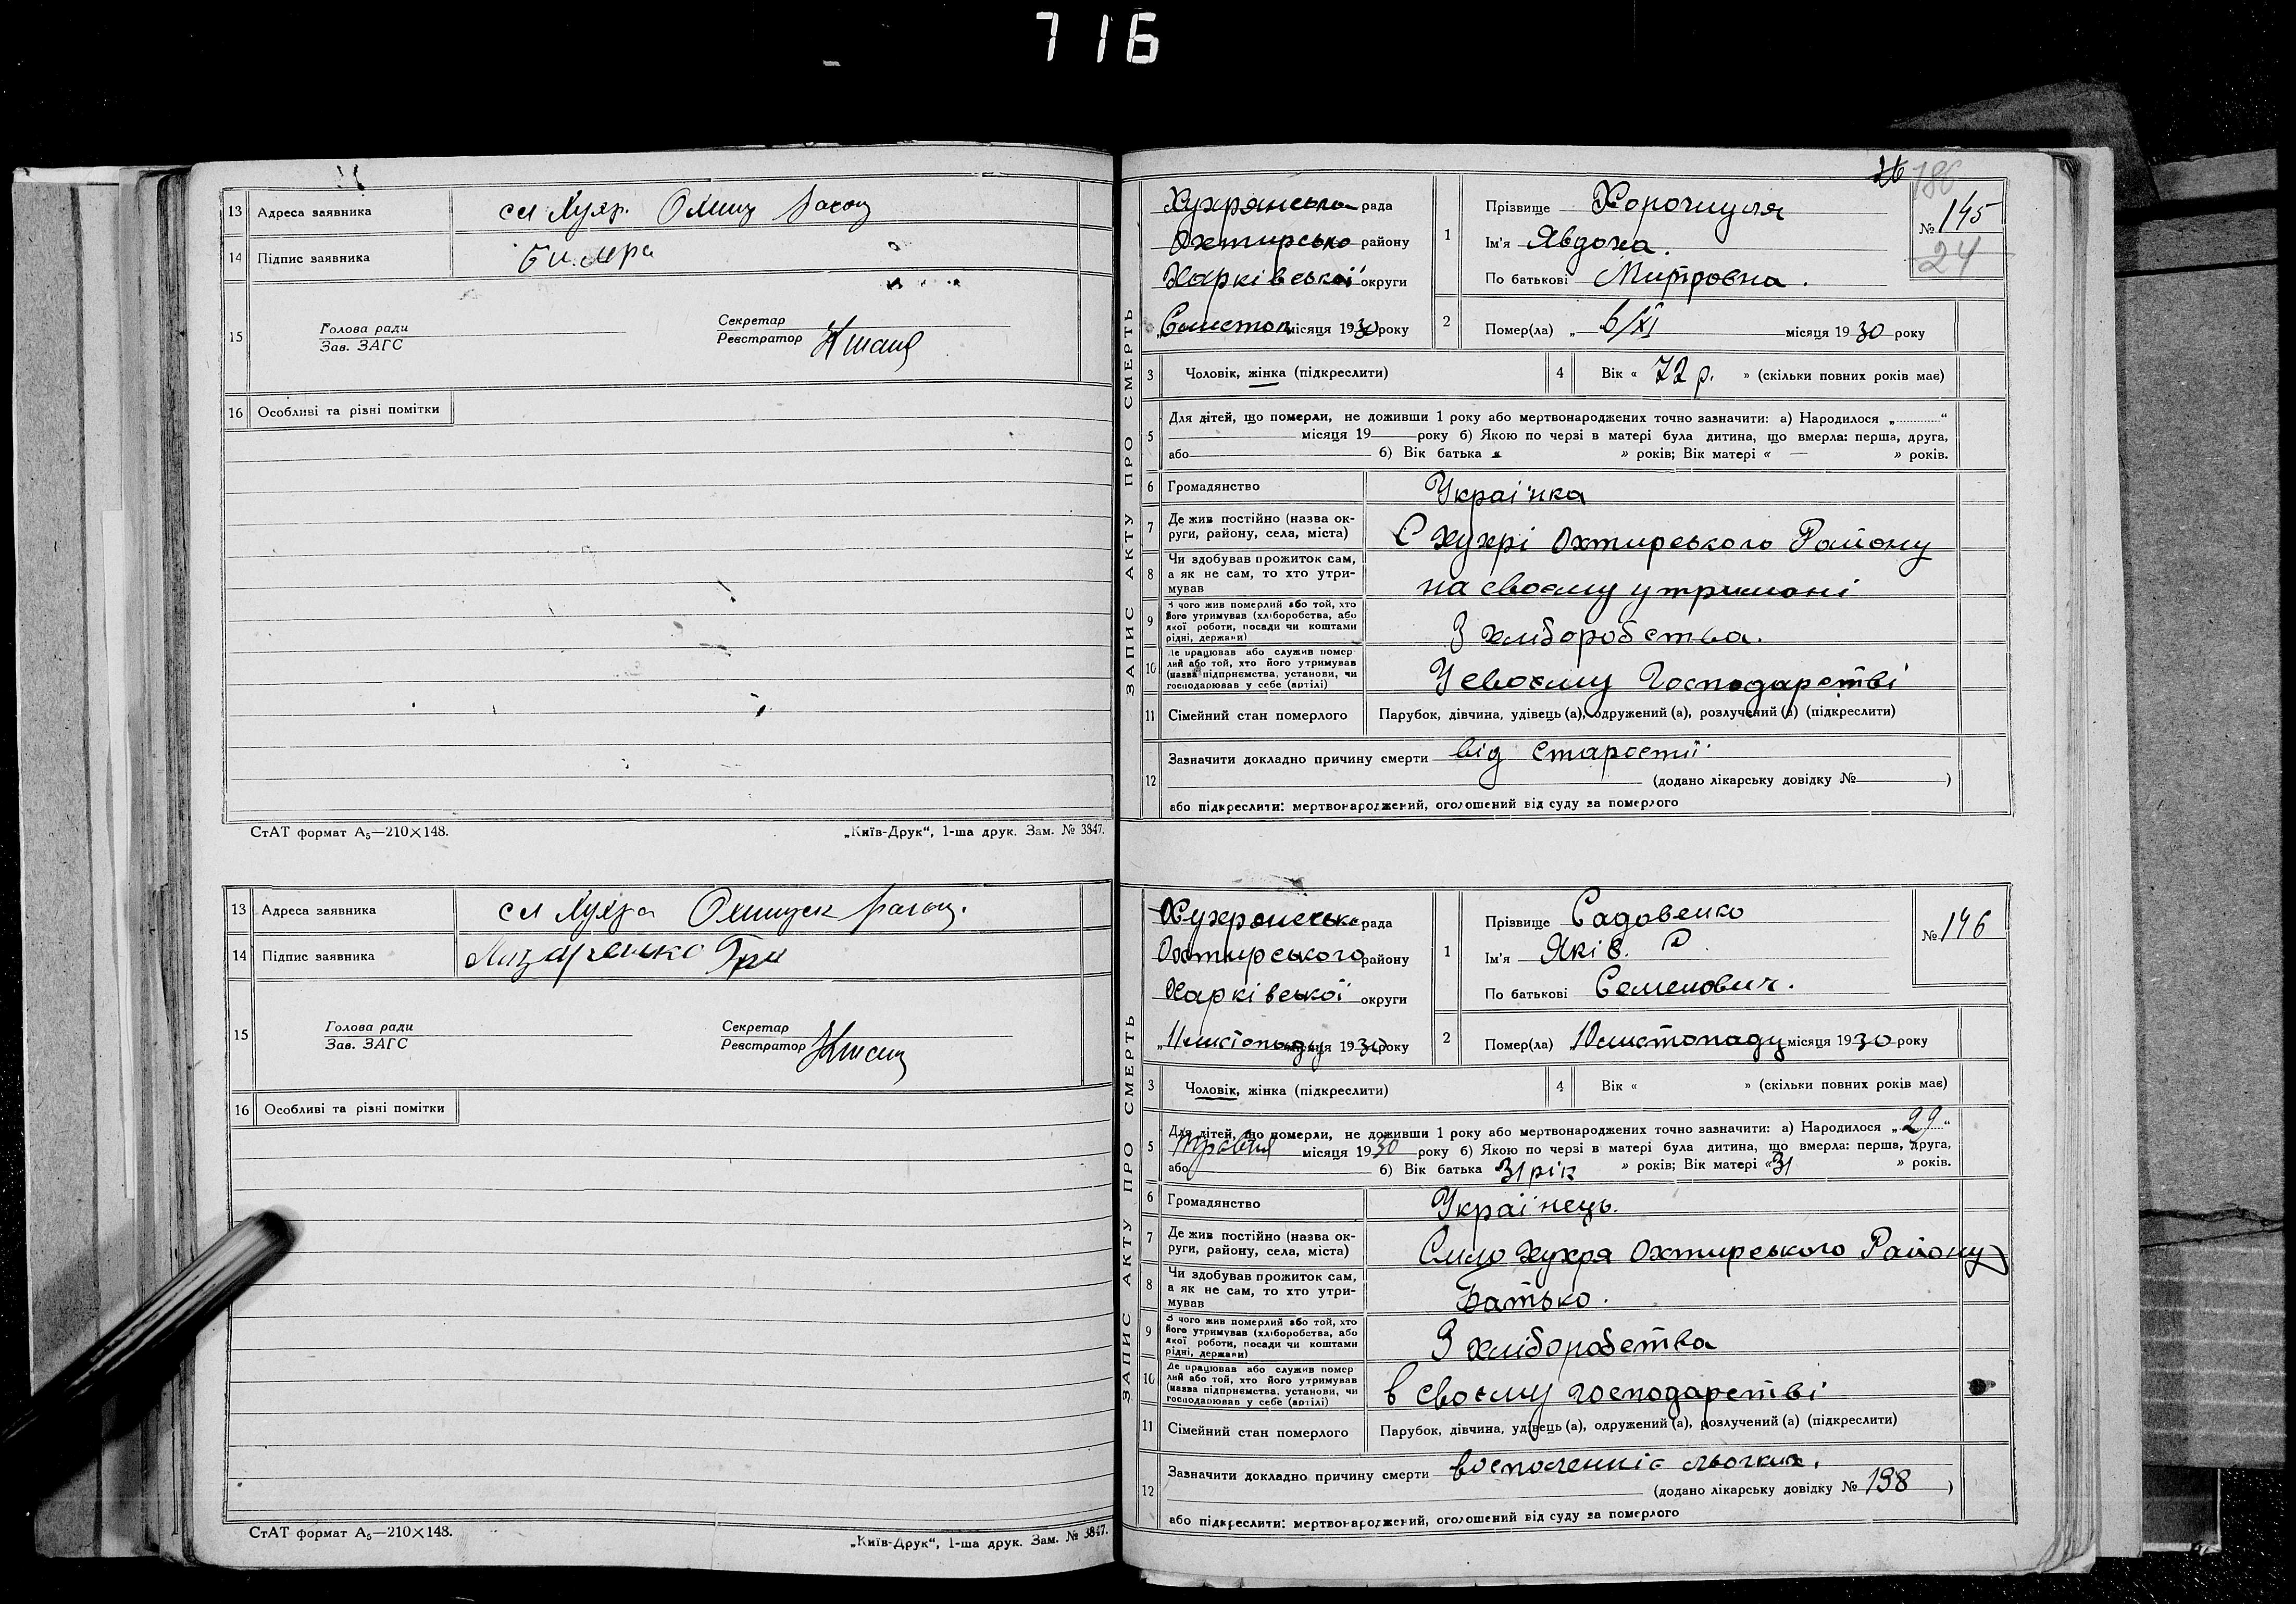 716
13 Адреса заявника сел Хухр.
14 Підпис заявника
15 Голова ради
Зав. ЗАГС
Секретар
Реєстратор
16 Особливі та різні помітки
СтАТ формат А₅—210×148. „Київ-Друк“, 1-ша друк. Зам. № 3847.
13 Адреса заявника сел Хухра
14 Підпис заявника
15 Голова ради
Зав. ЗАГС
Секретар
Реєстратор
16 Особливі та різні помітки
СтАТ формат А₅—210×148. „Київ-Друк“, 1-ша друк. Зам. № 3847.
26 186
ЗАПИС АКТУ ПРО СМЕРТЬ
Хухрянська рада
Охтирсько району
Харківської округи
місяця 1930 року
1 Прізвище
Ім'я Явдоха.
По батькові Митровна.
№ 145
24
2 Помер(ла) „ 6/XI місяця 1930 року
3 Чоловік, жінка (підкреслити)
4 Вік « 72 р. » (скільки повних років має)
5 Для дітей, що померли, не доживши 1 року або мертвонароджених точно зазначити: а) Народилося „ “
місяця 19 року б) Якою по черзі в матері була дитина, що вмерла: перша, друга,
або б) Вік батька « » років; Вік матері « — » років.
6 Громадянство Украінка
7 Де жив постійно (назва округи, району, села, міста) С хухрі Охтирського Району
8 Чи здобував прожиток сам, а як не сам, то хто утримував на своєму утримані
9 З чого жив померлий або той, хто його утримував (хліборобства, або якої роботи, посади чи коштами рідні, держави) З хліборобства.
10 Де працював або служив померлий або той, хто його утримував (назва підприємства, установи, чи господарював у себе (артілі) У своєму господарстві
11 Сімейний стан померлого Парубок, дівчина, удівець (а), одружений (а), розлучений (а) (підкреслити)
12 Зазначити докладно причину смерти від старості
(додано лікарську довідку № )
або підкреслити: мертвонароджений, оголошений від суду за померлого
ЗАПИС АКТУ ПРО СМЕРТЬ
рада
Охтирського району
Харківської округи
„11 листопаду місяця 1930 року
1 Прізвище Садовенко
Ім'я Яків.
По батькові Семенович.
№ 146
2 Помер(ла) „10 листопаду місяця 1930 року
3 Чоловік, жінка (підкреслити)
4 Вік « » (скільки повних років має)
5 Для дітей, що померли, не доживши 1 року або мертвонароджених точно зазначити: а) Народилося „ 29 “
травня місяця 1930 року б) Якою по черзі в матері була дитина, що вмерла: перша, друга,
або б) Вік батька 31 рік » років; Вік матері « 31 » років.
6 Громадянство Украінець.
7 Де жив постійно (назва округи, району, села, міста) Село Хухря Охтирського Району
8 Чи здобував прожиток сам, а як не сам, то хто утримував Батько.
9 З чого жив померлий або той, хто його утримував (хліборобства, або якої роботи, посади чи коштами рідні, держави) З хліборобства
10 Де працював або служив померлий або той, хто його утримував (назва підприємства, установи, чи господарював у себе (артілі) в своєму господарстві
11 Сімейний стан померлого Парубок, дівчина, удівець (а), одружений (а), розлучений (а) (підкреслити)
12 Зазначити докладно причину смерти
(додано лікарську довідку № 198 )
або підкреслити: мертвонароджений, оголошений від суду за померлого